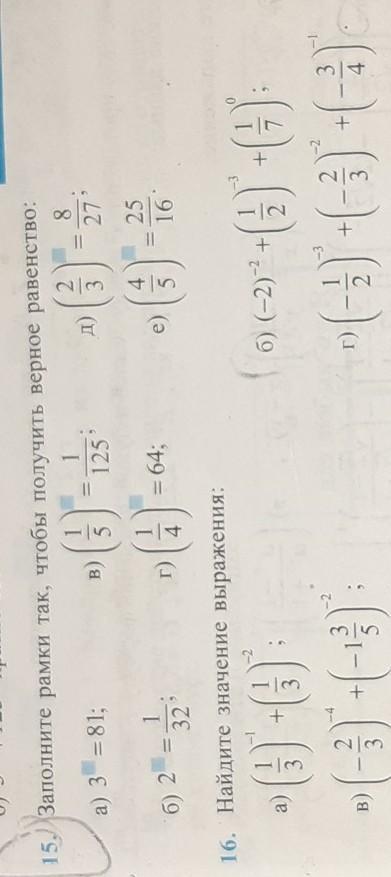 15. Заполните рамки так, чтобы получить верное равенство:
а) 3^□ = 81; в) (1/5)^□ = 1/125; д) (2/3)^□ = 8/27;
б) 2^□ = 1/32; г) (1/4)^□ = 64; е) (4/5)^□ = 25/16.
16. Найдите значение выражения:
а) (1/3)^-1 + (1/3)^-2; б) (-2)^-2 + (1/2)^-3 + (1/7)^0;
в) (-2/3)^-4 + (-1 3/5)^-2; г) (-1/2)^-3 + (-2/3)^-2 + (-3/4)^-1.